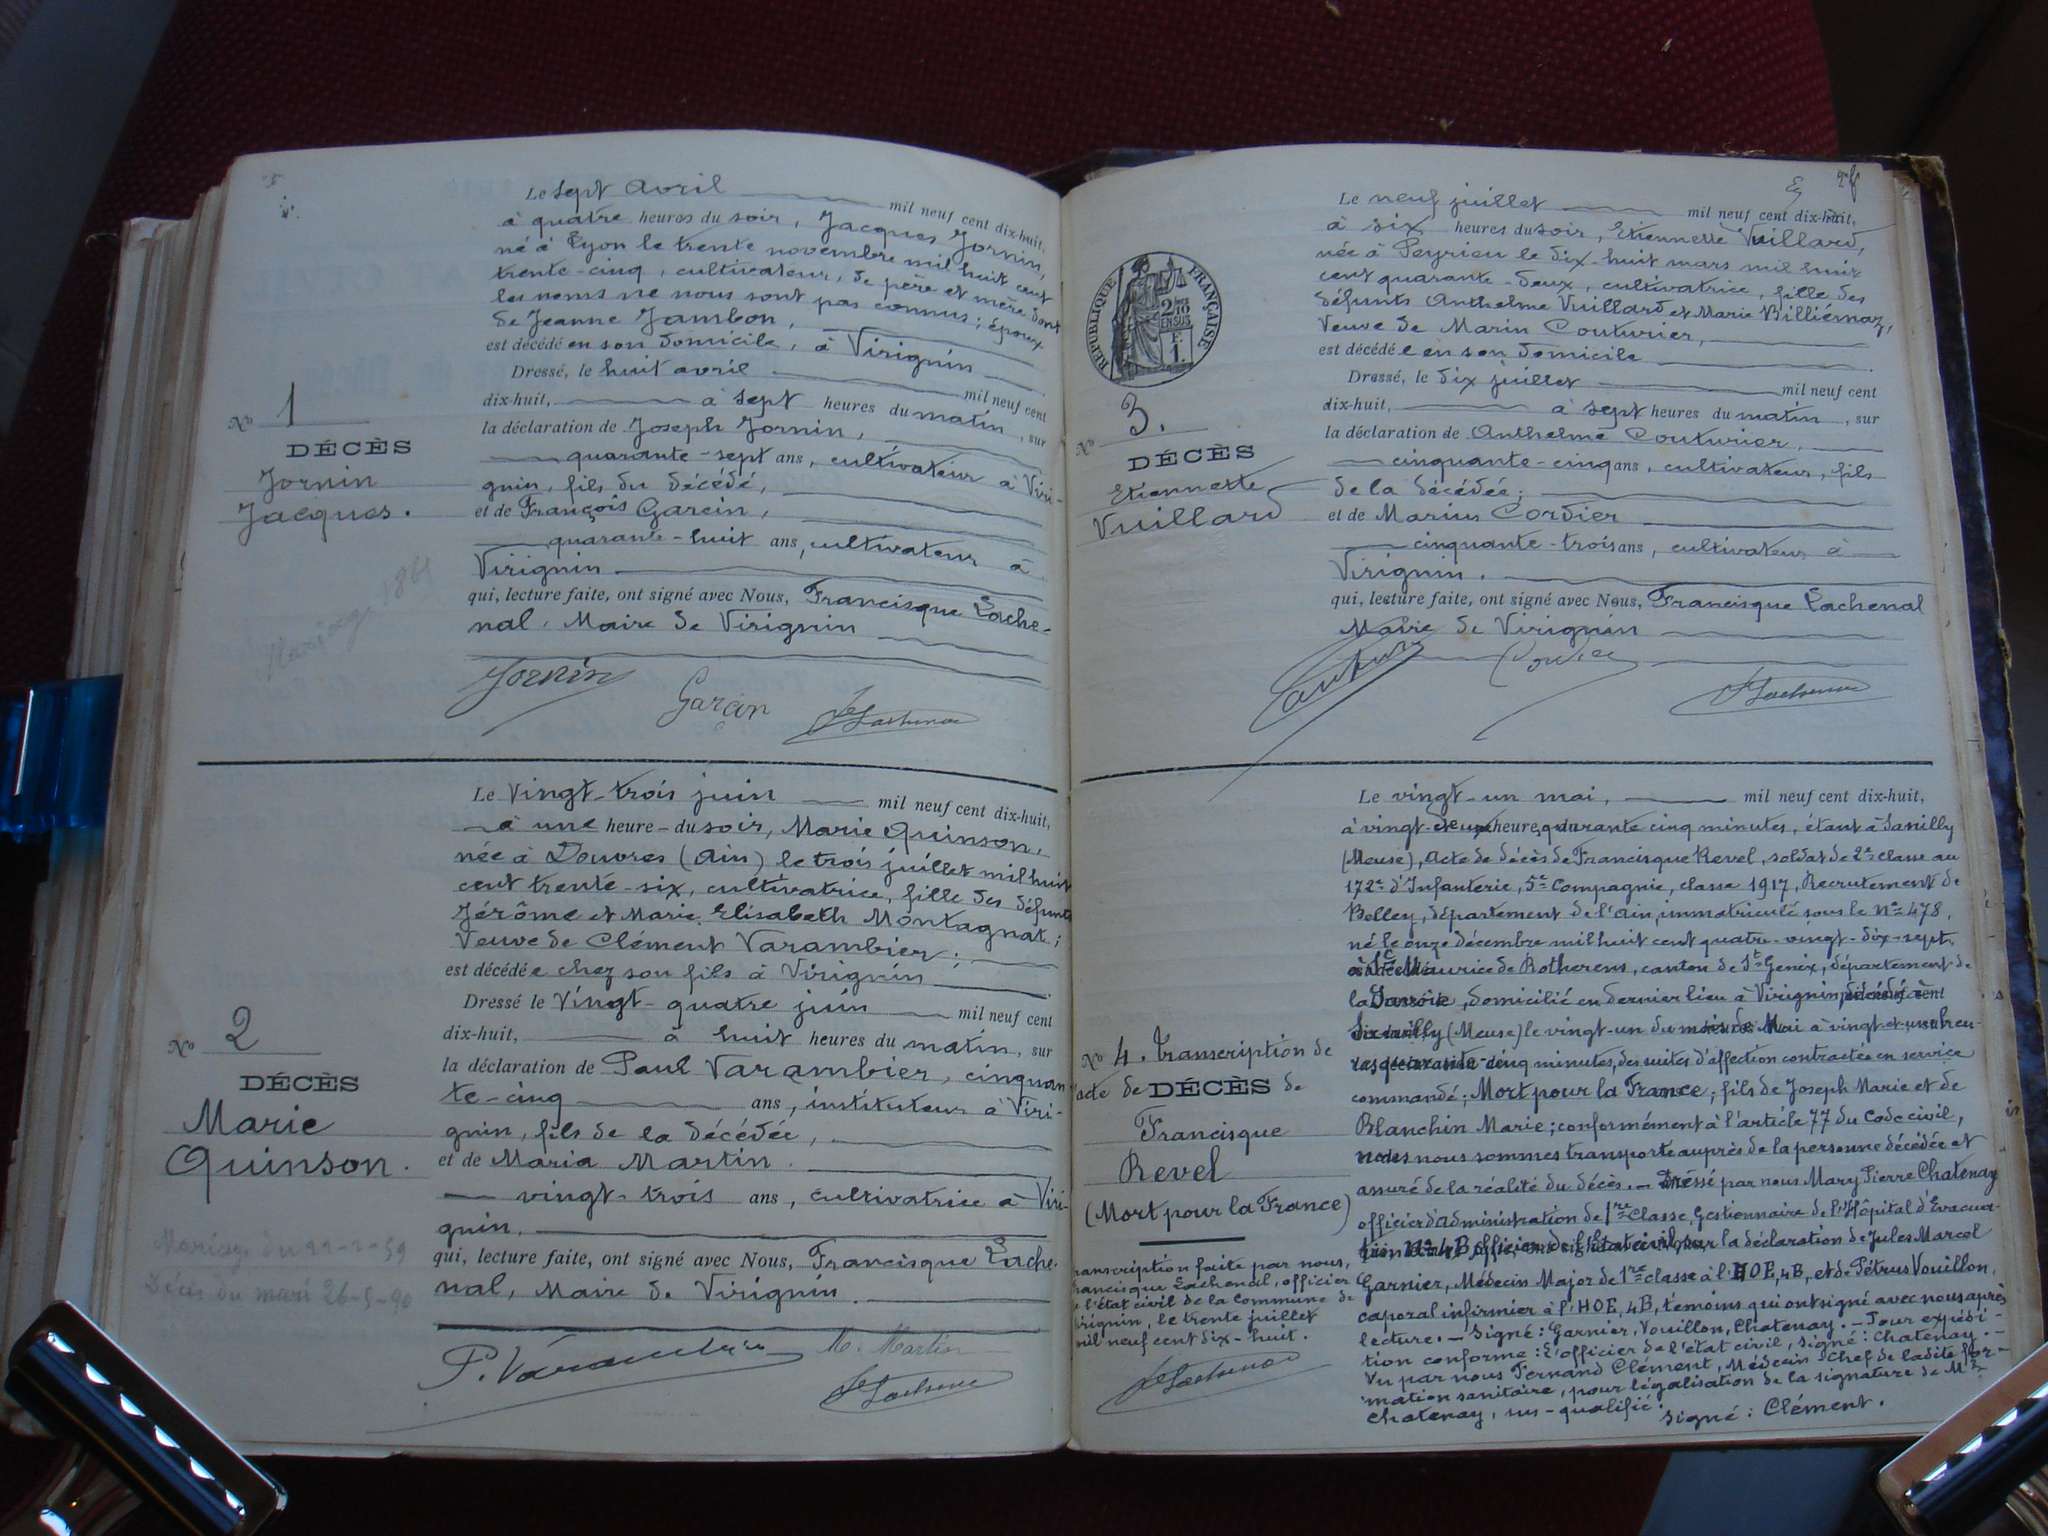 Le sept avril mil neuf cent dix-huit,
à quatre heures du soir, Jacques Jornin,
né à Lyon le trente novembre mil huit cent
trente-cinq, cultivateur, de père et mère dont
les noms ne nous sont pas connus; époux
de Jeanne Jambon,
est décédé en son domicile, à Virignin
Dressé, le huit avril mil neuf cent
dix-huit, à sept heures du matin, sur
la déclaration de Joseph Jornin,
quarante-sept ans, cultivateur à Viri-
gnin, fils du décédé,
et de François Garcin,
quarante-huit ans, cultivateur à
Virignin
qui, lecture faite, ont signé avec Nous, Francisque Lache-
nal, Maire de Virignin
Jornin
Garcin
Lachenal
No 1
DÉCÈS
Jornin
Jacques.
Mariage 1864
Le vingt-trois juin mil neuf cent dix-huit,
à une heure du soir, Marie Quinson,
née à Douvres (Ain) le trois juillet mil huit
cent trente-six, cultivatrice, fille des défunts
Jérôme et Marie Elisabeth Montagnat;
Veuve de Clément Varambier;
est décédée chez son fils à Virignin
Dressé le vingt-quatre juin mil neuf cent
dix-huit, à huit heures du matin, sur
la déclaration de Paul Varambier, cinquan-
te-cinq ans, instituteur à Viri-
gnin, fils de la décédée,
et de Maria Martin.
vingt-trois ans, cultivatrice à Viri-
gnin.
qui, lecture faite, ont signé avec Nous, Francisque Lache-
nal, Maire de Virignin.
P. Varambier
M. Martin
Lachenal
No 2
DÉCÈS
Marie
Quinson.
Mariage du
Décès du mari 26-5-90
Le neuf juillet mil neuf cent dix-huit,
à six heures du soir, Etiennette Vuillard,
née à Peyrieu le dix-huit mars mil huit
cent quarante-deux, cultivatrice, fille des
défunts Anthelme Vuillard et Marie Billiémaz,
Veuve de Marin Couturier,
est décédée en son domicile
Dressé, le dix juillet mil neuf cent
dix-huit, à sept heures du matin, sur
la déclaration de Anthelme Couturier,
cinquante-cinq ans, cultivateur, fils
de la décédée;
et de Marius Cordier
cinquante-trois ans, cultivateur à
Virignin.
qui, lecture faite, ont signé avec Nous, Francisque Lachenal
Maire de Virignin
Couturier
Cordier
Lachenal
RÉPUBLIQUE FRANÇAISE
2/10 EN SUS
F.
1.
No 3.
DÉCÈS
Etiennette
Vuillard
Le vingt-un mai, mil neuf cent dix-huit,
à vingt-et-une heure quarante cinq minutes, étant à
(Meuse), Acte de décès de Francisque Revel, soldat de 2e classe au
172e d'Infanterie, 5e Compagnie, classe 1917, Recrutement de
Belley, département de l'Ain, immatriculé sous le No 478,
né le onze décembre mil huit cent quatre-vingt-dix-sept,
à St Maurice de Rotherens, canton de St Genix, département de
la Savoie, domicilié en dernier lieu à Virignin, décédé à
(Meuse) le vingt-un du mois de Mai à vingt-et-une heu-
res quarante-cinq minutes, des suites d'affection contractée en service
commandé; Mort pour la France; fils de Joseph Marie et de
Blanchin Marie; conformément à l'article 77 du Code civil,
nous nous sommes transporté auprès de la personne décédée et
assuré de la réalité du décès. — Dressé par nous Mary Pierre Chatenay
officier d'administration de 1re Classe, Gestionnaire de l'Hôpital d'Evacua-
tion No 4B, officier de l'état civil, sur la déclaration de Jules Marcel
Garnier, Médecin Major de 1re classe à l'HOE, 4B, et de Pétrus Vouillon,
caporal infirmier à l'HOE, 4B, témoins qui ont signé avec nous après
lecture. — Signé: Garnier, Vouillon, Chatenay. — Pour expédi-
tion conforme: L'officier de l'état civil, signé: Chatenay. —
Vu par nous Fernand Clément, Médecin-Chef de ladite for-
mation sanitaire, pour légalisation de la signature de Mr
Chatenay, sus-qualifié.
Signé: Clément.
No 4. Transcription de
acte de DÉCÈS de
Francisque
Revel
(Mort pour la France)
ranscription faite par nous,
rancisque Lachenal, officier
e l'état civil de la Commune de
irignin, le trente juillet
mil neuf cent dix-huit.
Lachenal